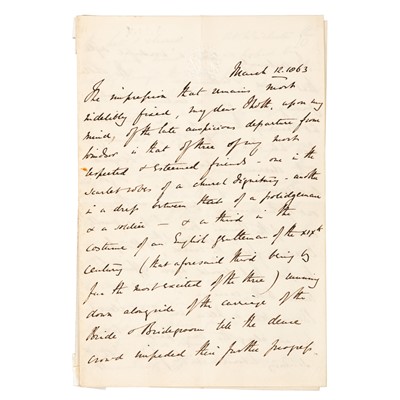 March 12. 1863
The impression that remains most
indelibly fixed, my dear, upon my
mind, of the late auspicious departure from
Windsor is that of three of my most
respected & esteemed friends - one in the
scarlet robes of a church dignitary - another
in a dress between that of a policeman
& a soldier - & a third in the
costume of an English gentleman of the XIXth
century (that aforesaid third being by
far the most excited of the three) running
down alongside of the carriage of the
Bride & Bridegroom till the dense
crowd impeded their further progress.